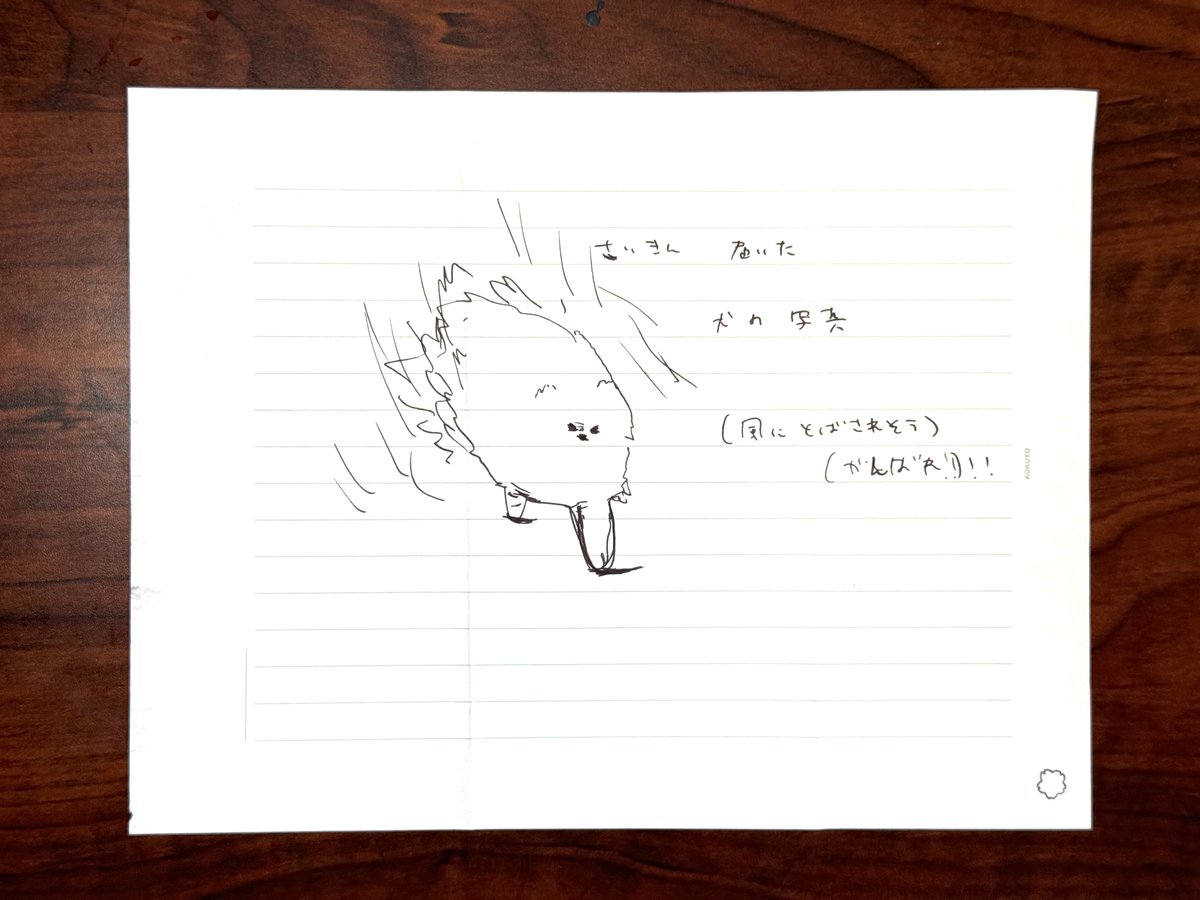 さいきん 届いた
犬の写真
(風にとばされそう)
(がんばれ!!)!!
KOKUYO